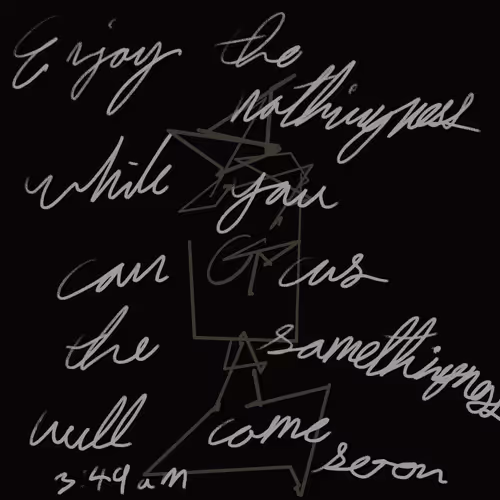 Enjoy the
nothingness
while you
can cus
the somethingness
will come
soon
3:49 am